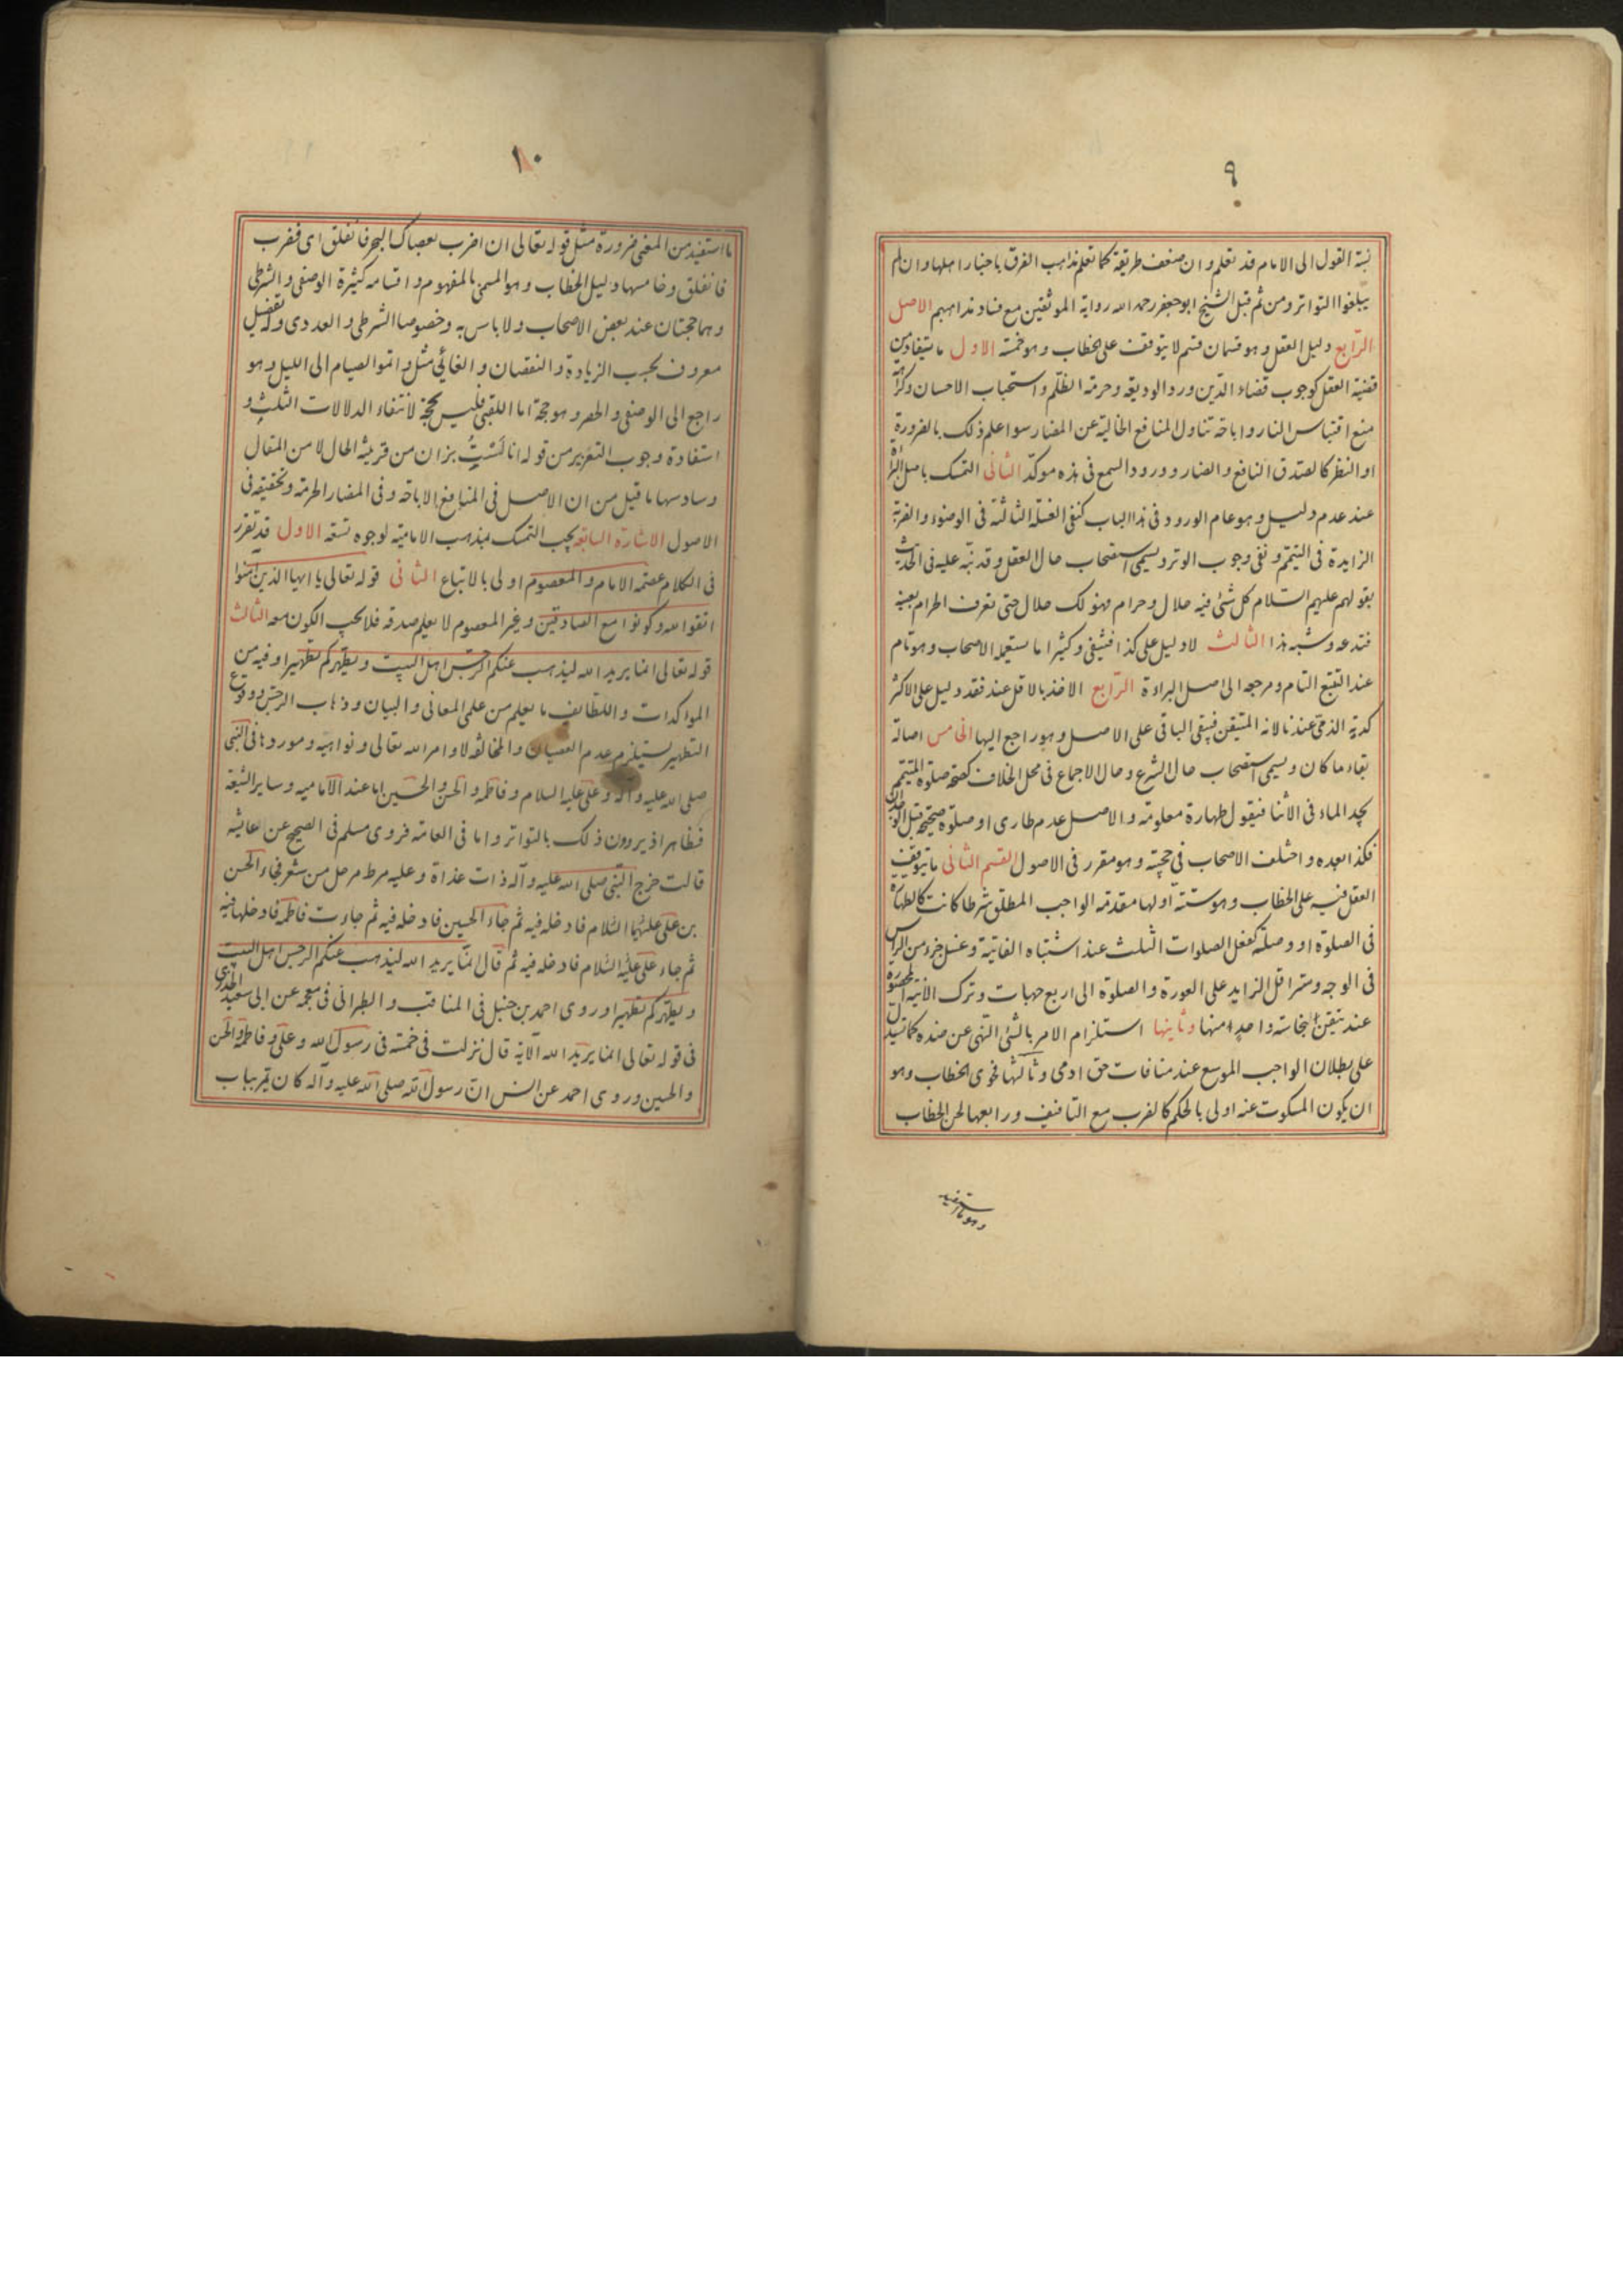 ٩
نسبة القول الى الامام قد تعلم وان ضعف طريقه كما تعلم مذاهب الفرق باخبار اهلها وان لم
يبلغوا التواتر ومن ثم قبل الشيخ ابوجعفر رحمه الله رواية الموثقين مع فساد مذاهبهم الاصل
الرابع دليل العقل وهو قسمان قسم لا يتوقف على الخطاب وهو خمسة الاول ما يستفاد من
قضية العقل كوجوب قضاء الدين ورد الوديعة وحرمة الظلم واستحباب الاحسان وكراهة
منع اقتباس النار واباحة تناول المنافع الخالية عن المضار سوا علم ذلك بالضرورة
او النظر كالصدق النافع والضار وورود السمع فى هذه موكد الثانى التمسك باصل البراءة
عند عدم دليل وهو عام الورود فى هذا الباب كنفى الغسلة الثالثة فى الوضوء والضربة
الزايدة فى التيمم ونفى وجوب الوتر ويسمى استصحاب حال العقل وقد نبه عليه فى الحديث
بقولهم عليهم السلام كل شئ فيه حلال وحرام فهو لك حلال حتى تعرف الحرام بعينه
فتدعه وشبه هذا الثالث لا دليل على كذا فينتفى وكثيرا ما يستعمله الاصحاب وهو تام
عند التتبع التام ومرجعه الى اصل البراءة الرابع الاخذ بالاقل عند فقد دليل على الاكثر
كدية الذمى عندنا لانه المتيقن فيبقى الباقى على الاصل وهو راجع اليها الخامس اصالة
بقاء ما كان ويسمى استصحاب حال الشرع وحال الاجماع فى محل الخلاف كصحة صلوة المتيمم
يجد الماء فى الاثنا فيقول طهارة معلومة والاصل عدم طارى او صلوة صحيحة قبل الوجدان
فكذا بعده واختلف الاصحاب فى حجيته وهو مقرر فى الاصول القسم الثانى ما يتوقف
العقل فيه على الخطاب وهو ستة اولها مقدمة الواجب المطلق شرطا كانت كالطهارة
فى الصلوة او وصلة كفعل الصلوات الثلث عند اشتباه الفايتة وغسل جزء من الراس
فى الوجه وستر اقل الزايد على العورة والصلوة الى اربع جهات وترك الآنية المحصورة
عند تيقن نجاسة واحد منها وثانيها استلزام الامر بالشئ النهى عن ضده كما تسدل
على بطلان الواجب الموسع عند منافات حق ادمى وثالثها فحوى الخطاب وهو
ان يكون المسكوت عنه اولى بالحكم كالضرب مع التافيف ورابعها لحن الخطاب
وهو ما استفيد
١٠
ما استفيد من المعنى ضرورة مثل قوله تعالى ان اضرب بعصاك البحر فانفلق اى فضرب
فانفلق وخامسها دليل الخطاب وهو المسمى بالمفهوم واقسامه كثيرة الوصفى والشرطى
وهما حجتان عند بعض الاصحاب ولا باس به وخصوصا الشرطى والعددى وله تفصيل
معروف بحسب الزيادة والنقصان والغائي مثل واتموا الصيام الى الليل وهو
راجع الى الوصفى والحصر وهو حجة اما اللقبى فليس بحجة لانتفاء الدلالات الثلث و
استفادة وجوب التعزير من قوله انا لست بزان من قرينة الحال لا من المقال
وسادسها ما قيل من ان الاصل فى المنافع الاباحة وفى المضار الحرمة وتحقيقه فى
الاصول الاشارة السابعة يجب التمسك بمذهب الامامية لوجوه تسعة الاول قد تقرر
فى الكلام عصمة الامام والمعصوم اولى بالاتباع الثانى قوله تعالى يا ايها الذين آمنوا
اتقوا الله وكونوا مع الصادقين وغير المعصوم لا يعلم صدقه فلا يجب الكون معه الثالث
قوله تعالى انما يريد الله ليذهب عنكم الرجس اهل البيت ويطهركم تطهيرا وفيه من
الموكدات واللطائف ما يعلم من علمى المعانى والبيان وذهاب الرجس ووقوع
التطهير يستلزم عدم العصيان والمخالفة لاوامر الله تعالى ونواهيه وموردها فى النبى
صلى الله عليه وآله وعلى عليه السلام وفاطمة والحسن والحسين اما عند الامامية وساير الشيعة
فظاهر اذ يروون ذلك بالتواتر واما فى العامة فروى مسلم فى الصحيح عن عائشة
قالت خرج النبى صلى الله عليه وآله ذات غداة وعليه مرط مرحل من شعر فجاء الحسن
بن على عليهما السلام فادخله فيه ثم جاء الحسين فادخله فيه ثم جاءت فاطمة فادخلها فيه
ثم جاء على عليه السلام فادخله فيه ثم قال انما يريد الله ليذهب عنكم الرجس اهل البيت
ويطهركم تطهيرا وروى احمد بن حنبل فى المناقب والطبرانى فى معجمه عن ابى سعيد الخدرى
فى قوله تعالى انما يريد الله الآية قال نزلت فى خمسة فى رسول الله وعلى وفاطمة والحسن
والحسين وروى احمد عن انس ان رسول الله صلى الله عليه وآله كان يمر بباب